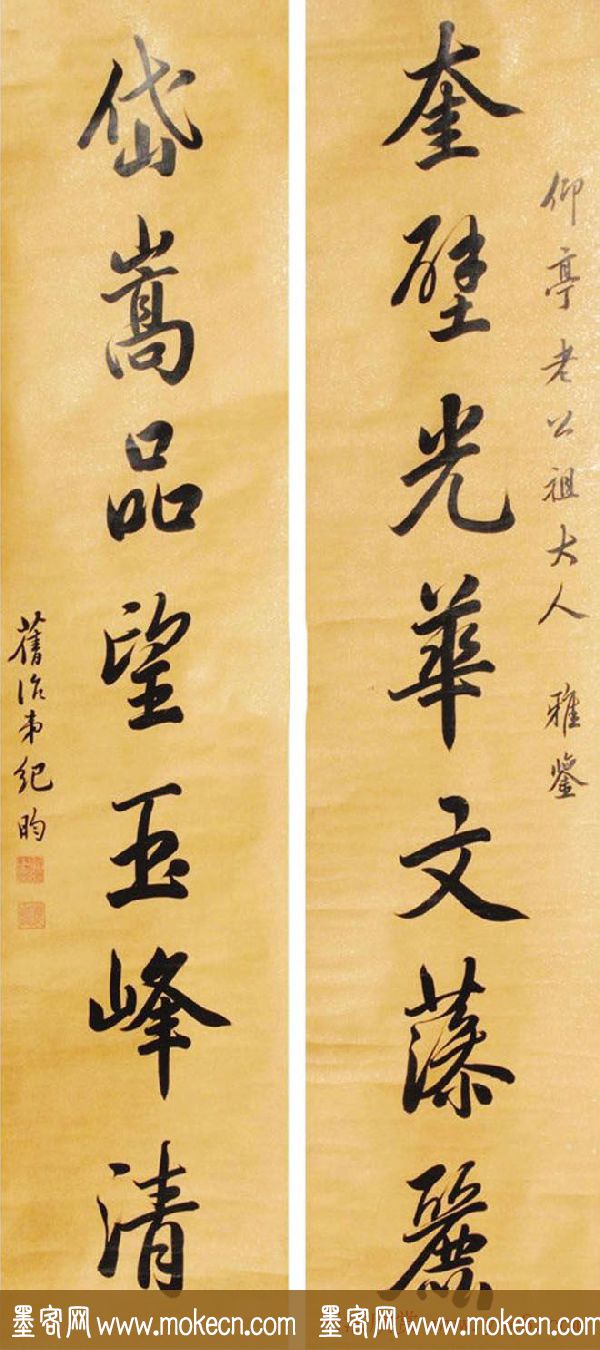 仰亭老公祖大人 雅鑒
奎壁光華文藻麗
岱嵩品望玉峰清
舊治弟紀昀
墨客网 www.mokecn.com
墨客网 www.mokecn.com